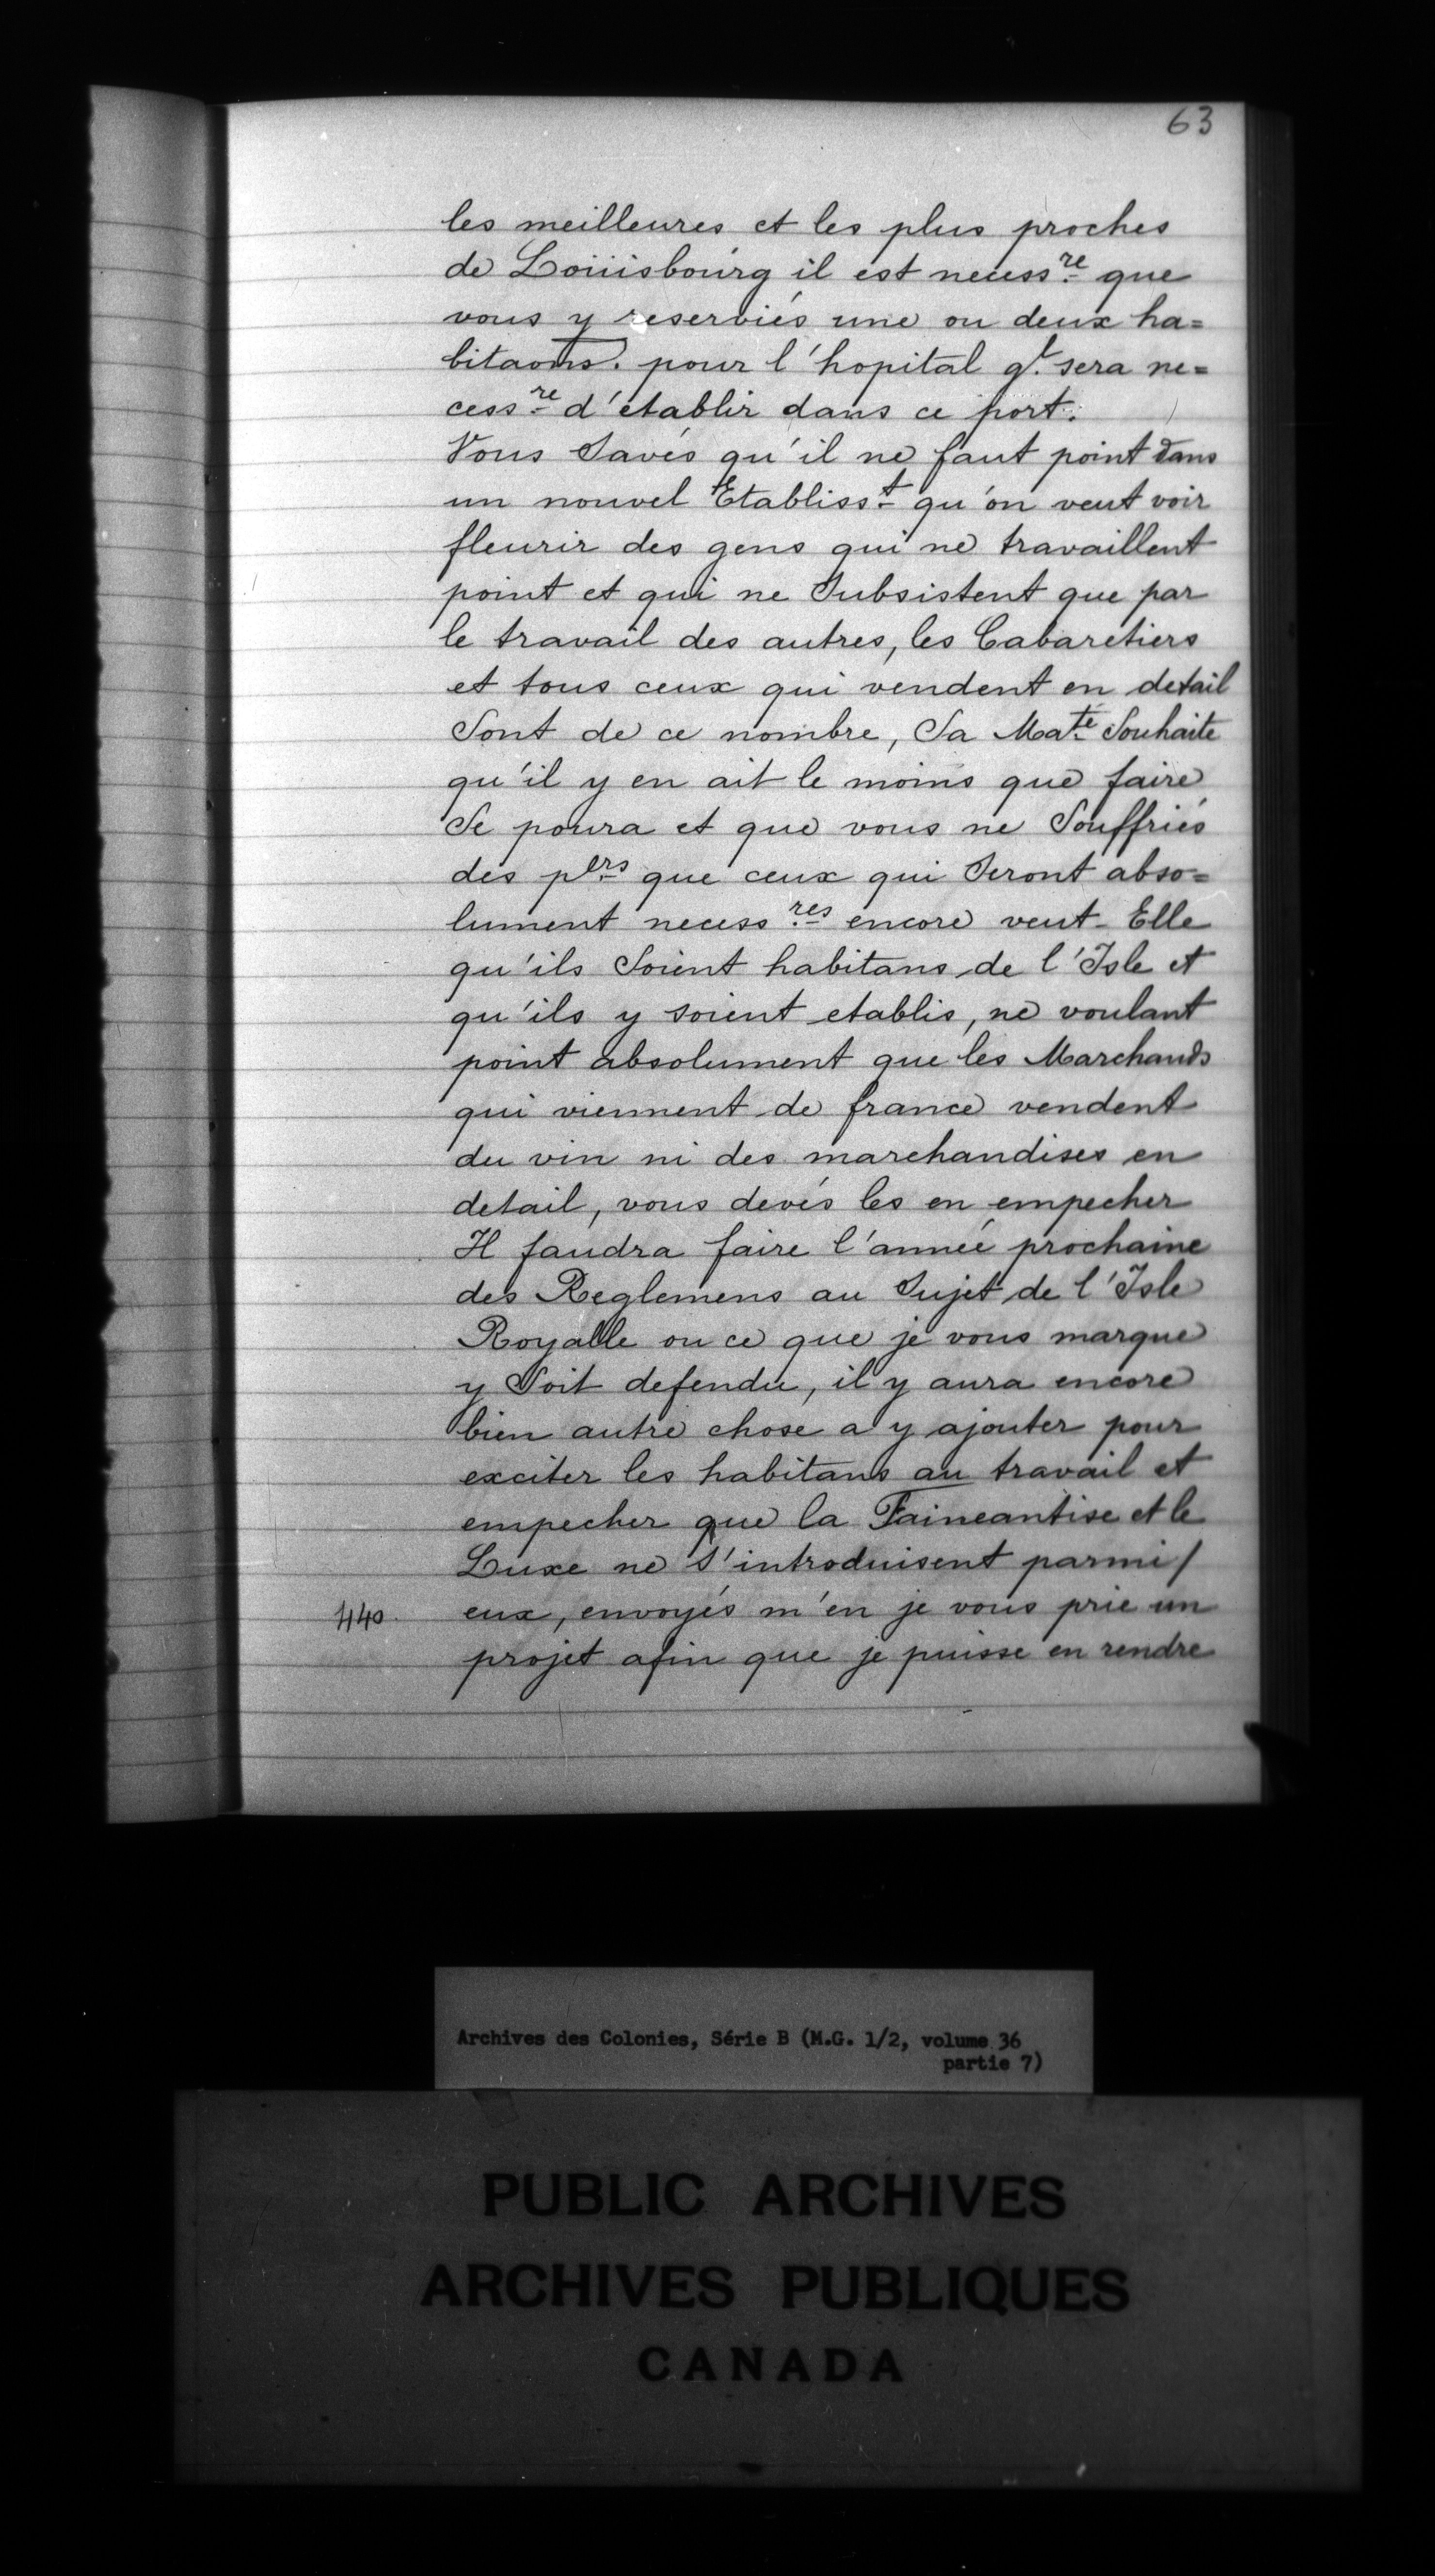 63
les meilleures et les plus proches
de Loüisbourg il est necess.re que
vous y reserviés une ou deux ha=
bitaons. pour l'hopital q.l sera ne=
cess.re d'établir dans ce port.
Vous Savés qu'il ne faut point dans
un nouvel Etabliss.t qu'on veut voir
fleurir des gens qui ne travaillent
point et qui ne Subsistent que par
le travail des autres, les Cabaretiers
et tous ceux qui vendent en detail
Sont de ce nombre, Sa Ma.té Souhaite
qu'il y en ait le moins que faire
Se poura et que vous ne Souffriés
des p.ers que ceux qui Seront abso=
lument necess.res encore veut-Elle
qu'ils Soient habitans de l'Isle et
qu'ils y soient etablis, ne voulant
point absolument que les Marchands
qui viennent de france vendent
du vin ni des marchandises en
detail, vous devés les en empecher
Il faudra faire l'année prochaine
des Reglemens au Sujet de l'Isle
Royalle ou ce que je vous marque
y Soit defendu, il y aura encore
bien autre chose a y ajouter pour
exciter les habitans au travail et
empecher que la Faineantise et le
Luxe ne S'introduisent parmi/
440. eux, envoyés m'en je vous prie un
projet afin que je puisse en rendre
Archives des Colonies, Série B (M.G. 1/2, volume 36
partie 7)
PUBLIC ARCHIVES
ARCHIVES PUBLIQUES
CANADA